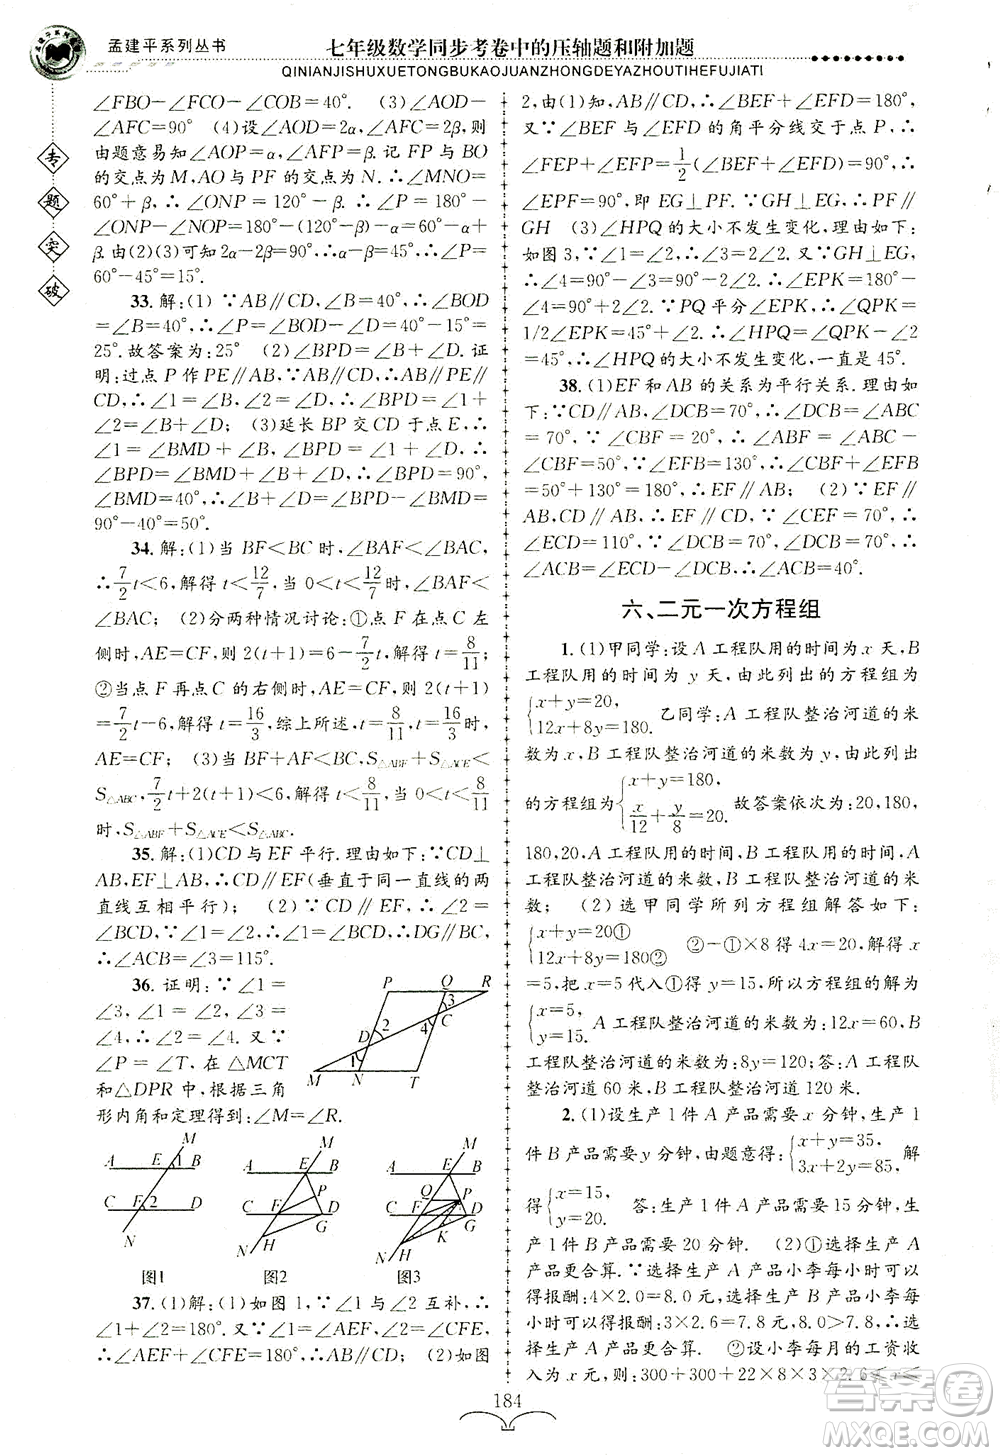 孟建平系列丛书
七年级数学同步考卷中的压轴题和附加题
QINIANJISHUXUETONGBUKAOJUANZHONGDEYAZHOUTIHEFUJIATI
专
题
突
破
∠FBO－∠FCO－∠COB＝40°. (3)∠AOD－
∠AFC＝90° (4)设∠AOD＝2α,∠AFC＝2β,则
由题意易知∠AOP＝α,∠AFP＝β.记 FP 与 BO
的交点为 M,AO 与 PF 的交点为 N.∴∠MNO＝
60°＋β,∴∠ONP＝120°－β.∴∠P＝180°－
∠OPN－∠NOP＝180°－(120°－β)－α＝60°＋
β.由(2)(3)可知 2α－2β＝90°,∴α－β＝45°.∴∠P＝
60°－45°＝15°.
33.解:(1)∵AB∥CD,∠B＝40°,∴∠BOD
＝∠B＝40°,∴∠P＝∠BOD－∠D＝40°－15°＝
25°.故答案为:25° (2)∠BPD＝∠B＋∠D.证
明:过点 P 作 PE∥AB,∵AB∥CD,∴AB∥PE∥
CD,∴∠1＝∠B,∠2＝∠D,∴∠BPD＝∠1＋
∠2＝∠B＋∠D; (3)延长 BP 交 CD 于点 E,∴
∠1＝∠BMD＋∠B,∠BPD＝∠1＋∠D,∴
∠BPD＝∠BMD＋∠B＋∠D,∵∠BPD＝90°,
∠BMD＝40°,∴∠B＋∠D＝∠BPD－∠BMD＝
90°－40°＝50°.
34.解:(1)当 BF＜BC 时,∠BAF＜∠BAC,
∴7/2 t＜6,解得 t＜12/7,当 0＜t＜12/7时,∠BAF＜
∠BAC; (2)分两种情况讨论:①点 F 在点 C 左
侧时,AE＝CF,则 2(t＋1)＝6－7/2 t,解得 t＝8/11;
②当点 F 再点 C 的右侧时,AE＝CF 则 2(t＋1)
＝7/2 t－6,解得 t＝16/3,综上所述,t＝8/11或 t＝16/3时,
AE＝CF; (3)当 BF＋AF＜BC 时,S△ABF＋S△ACE＜
S△ABC,7/2 t＋2(t＋1)＜6,解得 t＜8/11,当 0＜t＜8/11
时,S△ABF＋S△ACE＜S△ABC.
35.解:(1)CD 与 EF 平行.理由如下:∵CD⊥
AB,EF⊥AB,∴CD∥EF(垂直于同一直线的两
直线互相平行); (2)∵CD∥EF,∴∠2＝
∠BCD,∵∠1＝∠2,∴∠1＝∠BCD,∴DG∥BC,
∴∠ACB＝∠3＝115°.
36.证明:∵∠1＝
∠3,∠1＝∠2,∠3＝
∠4,∴∠2＝∠4.又∵
∠P＝∠T,在△MCT
和△DPR 中,根据三角
形内角和定理得到:∠M＝∠R.
P Q R
3
2 C
D 4
1
M N T
M
A E 1 B
C F 2 D
N
图1
M
A E B
P
C F D
G
H
N
图2
M
A E B
Q P
C F D
K G
H
N
图3
37.(1)解:(1)如图 1,∵∠1 与∠2 互补,∴
∠1＋∠2＝180°.又∵∠1＝∠AEF,∠2＝∠CFE,
∴∠AEF＋∠CFE＝180°,∴AB∥CD; (2)如图
2,由(1)知,AB∥CD,∴∠BEF＋∠EFD＝180°,
又∵∠BEF 与∠EFD 的角平分线交于点 P,∴
∠FEP＋∠EFP＝1/2(∠BEF＋∠EFD)＝90°,∴
∠EPF＝90°,即 EG⊥PF.∵GH⊥EG,∴PF∥
GH (3)∠HPQ 的大小不发生变化,理由如下:
如图 3,∵∠1＝∠2,∴∠3＝2∠2.又∵GH⊥EG,
∴∠4＝90°－∠3＝90°－2∠2.∴∠EPK＝180°－
∠4＝90°＋2∠2.∵PQ 平分∠EPK,∴∠QPK＝
1/2∠EPK＝45°＋∠2.∴∠HPQ＝∠QPK－∠2＝
45°,∴∠HPQ 的大小不发生变化,一直是 45°.
38.(1)EF 和 AB 的关系为平行关系.理由如
下:∵CD∥AB,∠DCB＝70°,∴∠DCB＝∠ABC
＝70°,∵∠CBF＝20°,∴∠ABF＝∠ABC－
∠CBF＝50°,∵∠EFB＝130°,∴∠ABF＋∠EFB
＝50°＋130°＝180°,∴EF∥AB; (2)∵EF∥
AB,CD∥AB,∴EF∥CD,∵∠CEF＝70°,∴
∠ECD＝110°,∵∠DCB＝70°,∴∠ACB＝
∠ECD－∠DCB,∴∠ACB＝40°.
六、二元一次方程组
1.(1)甲同学:设 A 工程队用的时间为 x 天,B
工程队用的时间为 y 天,由此列出的方程组为
{x＋y＝20,
12x＋8y＝180. 乙同学:A 工程队整治河道的米
数为 x,B 工程队整治河道的米数为 y,由此列出
的方程组为{x＋y＝180,
x/12＋y/8＝20. 故答案依次为:20,180,
180,20,A 工程队用的时间,B 工程队用的时间,A
工程队整治河道的米数,B 工程队整治河道的米
数; (2)选甲同学所列方程组解答如下:
{x＋y＝20①
12x＋8y＝180② ②－①×8 得 4x＝20,解得 x
＝5,把 x＝5 代入①得 y＝15,所以方程组的解为
{x＝5,
y＝15. A 工程队整治河道的米数为:12x＝60,B
工程队整治河道的米数为:8y＝120;答:A 工程队
整治河道 60 米,B 工程队整治河道 120 米.
2.(1)设生产 1 件 A 产品需要 x 分钟,生产 1
件 B 产品需要 y 分钟,由题意得:{x＋y＝35,
3x＋2y＝85. 解
得{x＝15,
y＝20. 答:生产 1 件 A 产品需要 15 分钟,生
产 1 件 B 产品需要 20 分钟. (2)①选择生产 A
产品更合算.∵每生产 1 件 A 产品给小李每小时
得报酬:4×2.0＝8.0 元,每生产 1 件 B 产品小李
得报酬:3×2.6＝7.8 元,8.0＞7.8,∴选择生产 A
产品更合算. ②设小李每月的工资收
入为 x 元,则:300＋300＋22×8×3×2.6≤x≤
184
答案圈
MXQE.COM